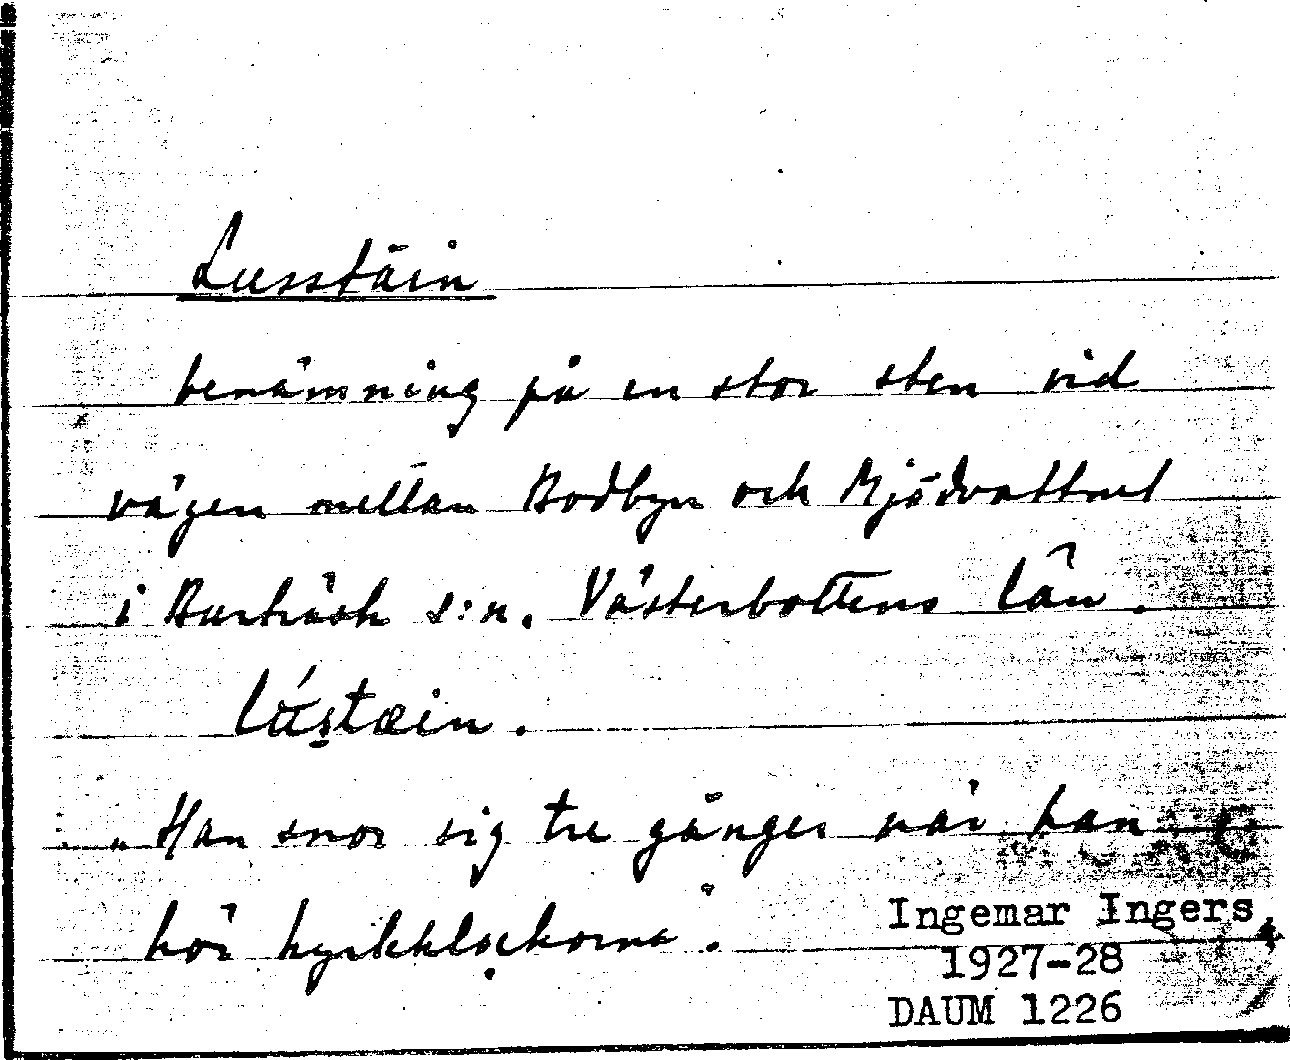 Lusstäin
benämning på en stor sten vid
vägen mellan Bodbyn och Mjödvattnet
i Burträsk s:n. Västerbottens län.
lústæin.
"Han snor sig tre gånger när han
hör kyrkklockorna".
Ingemar Ingers,
1927-28
DAUM 1226